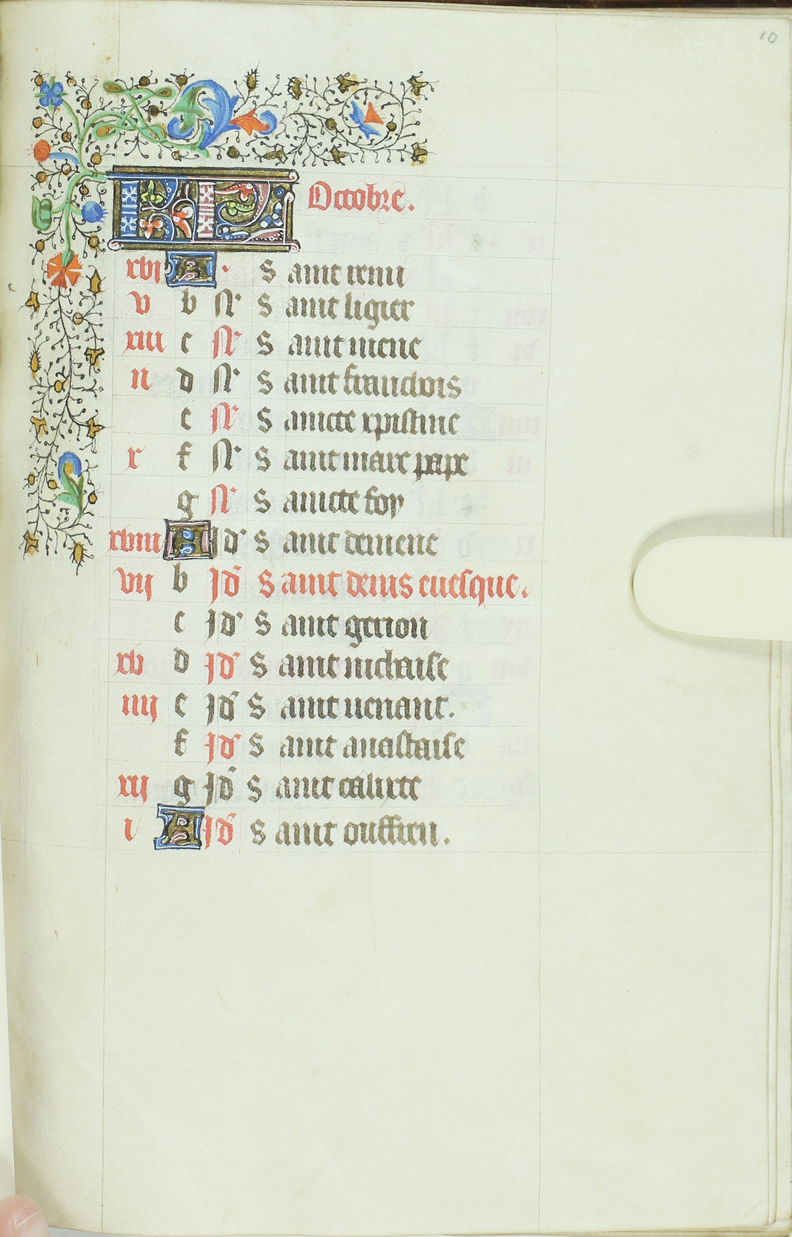 10
Octobre.
xvi A · Saint remi
v b N Saint ligier
xiii c N Saint mene
ii d N Saint franchois
e N Saincte xpistine
x f N Saint marc pape
g N Saincte foy
xviii A Id Saint demene
vii b Id Saint denis euesque.
c Id Saint gerion
xv d Id Saint nichaise
iiii e Id Saint uenant.
f Id Saint anastaise
xii g Id Saint calixte
i A Id Saint oulfren.